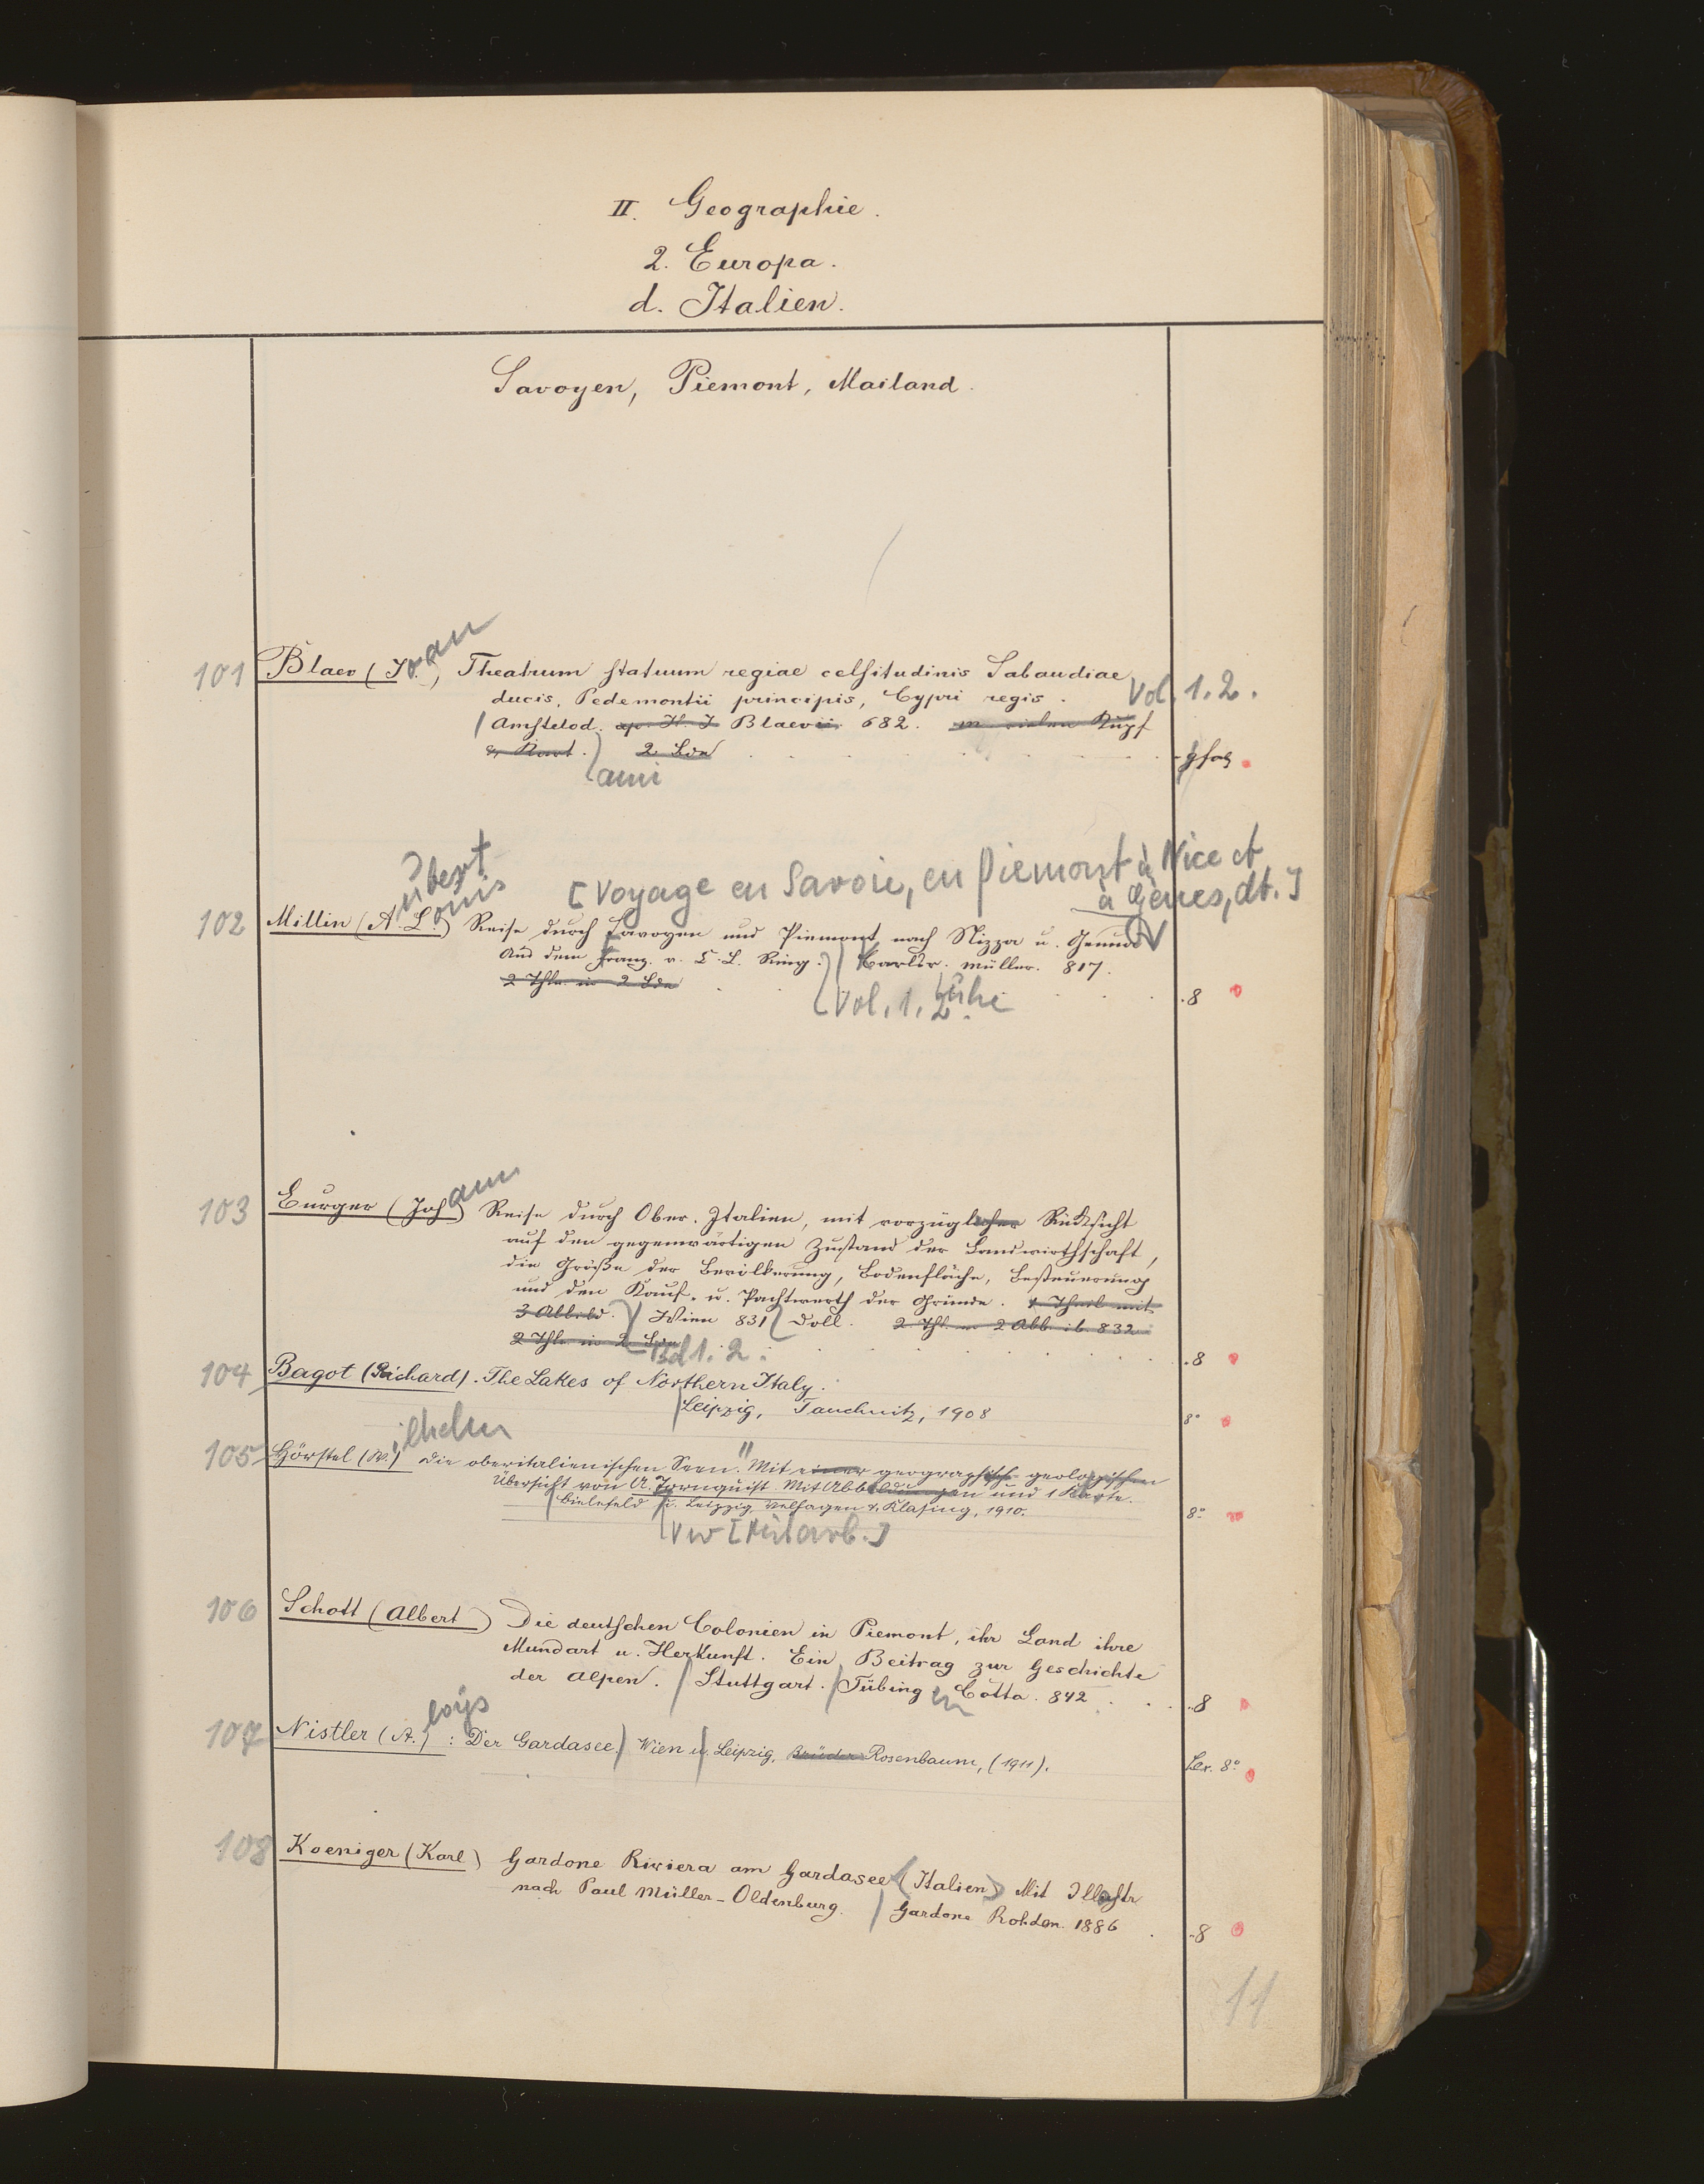 II. Geographie.
2. Europa.
d. Italien.
Savoyen, Piemont, Mailand.
101 Blaev (J. oan), Theatrum statuum regiae celsitudinis Sabaudiae
ducis, Pedemontii principis, Cypri regis. Vol. 1.2.
Amstelod. ap. H. J. Blaevii. 682. m. vielen Kupf
u. Kart. 2 Bde
ami
gfol
[Voyage en Savoie, en Piemont à Nice et
à Gènes, dt.]
102 Millin (A. ubert L. ouis) Reise durch Savoyen und Piemont nach Nizza u. Genua
Aus dem Franz. v. L. Ring. Carlsr. Müller. 817.
2 Thle in 2 Bde 8
Vol. 1. 2. uhe
103 Burger (Joh ann) Reise durch Ober-Italien, mit vorzüglicher Rücksicht
auf den gegenwärtigen Zustand der Landwirthschaft,
die Größe der Bevölkerung, Bodenfläche, Besteuerung
und den Kauf- u. Pachtwerth der Gründe. 1. Theil mit
3 Abbild. Wien 831 Doll. 2. Thl. m 2 Abb. ib. 832
2 Thle in 2 Bde Bd 1. 2. 8
104 Bagot (Richard). The Lakes of Northern Italy.
Leipzig, Tauchnitz, 1908 8°
105 Hörstel (W.) ilhelm Die oberitalienischen Seen. Mit einer geographisch-geologischen
Übersicht von A. Tornquist. Mit Abbildungen und 1 Karte.
Bielefeld u. Leipzig, Velhagen & Klasing, 1910. 8°
Vw [Mitarb.]
106 Schott (Albert) Die deutschen Colonien in Piemont, ihr Land ihre
Mundart u. Herkunft. Ein Beitrag zur Geschichte
der Alpen. Stuttgart. Tübing en Cotta. 842 8
107 Nistler (A.) loys : Der Gardasee. Wien u. Leipzig, Brüder Rosenbaum, (1911). Lex. 8°
108 Koeniger (Karl) Gardone Riviera am Gardasee (Italien) Mit Illustr
nach Paul Müller-Oldenburg. Gardone Rohden. 1886 8
11